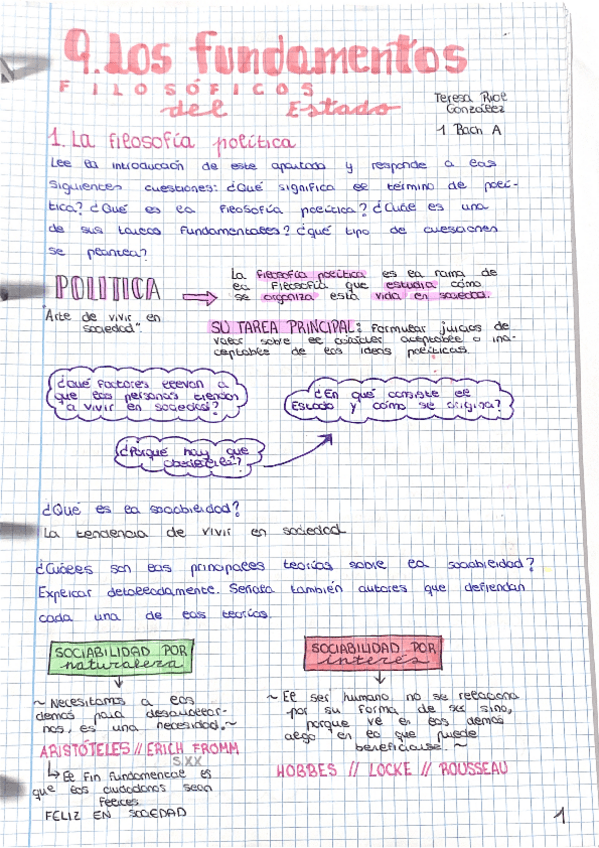 9. Los fundamentos
FILOSÓFICOS
del Estado
Teresa
González
1 Bach A
1. La filosofía política
Lee la introducción de este apartado y responde a las
siguientes cuestiones: ¿Qué significa el término de polí-
tica? ¿Qué es la filosofía política? ¿Cuál es una
de sus tareas fundamentales? ¿qué tipo de cuestiones
se plantea?
POLITICA
"Arte de vivir en
sociedad".
La filosofía política es la rama de
la filosofía que estudia cómo
se organiza esta vida en sociedad.
SU TAREA PRINCIPAL: Formular juicios de
valor sobre el carácter aceptable o ina-
ceptable de las ideas políticas.
¿Qué factores llevan a
que las personas tiendan
a vivir en sociedad?
¿En qué consiste el
Estado y cómo se origina?
¿Porqué hay que
obedecerle?
¿Qué es la sociabilidad?
La tendencia de vivir en sociedad
¿Cuáles son las principales teorías sobre la sociabilidad?
Explicar detalladamente. Señala también autores que defiendan
cada una de las teorías.
SOCIABILIDAD POR
naturaleza
~ Necesitamos a los
demás para desarrollar-
nos, es una necesidad. ~
ARISTÓTELES // ERICH FROMM
S.XX
El fin fundamental es
que los ciudadanos sean
felices.
FELIZ EN SOCIEDAD
SOCIABILIDAD POR
interés
~ El ser humano no se relaciona
por su forma de ser sino,
porque ve en los demás
algo en lo que puede
beneficiarse. ~
HOBBES // LOCKE // ROUSSEAU
1